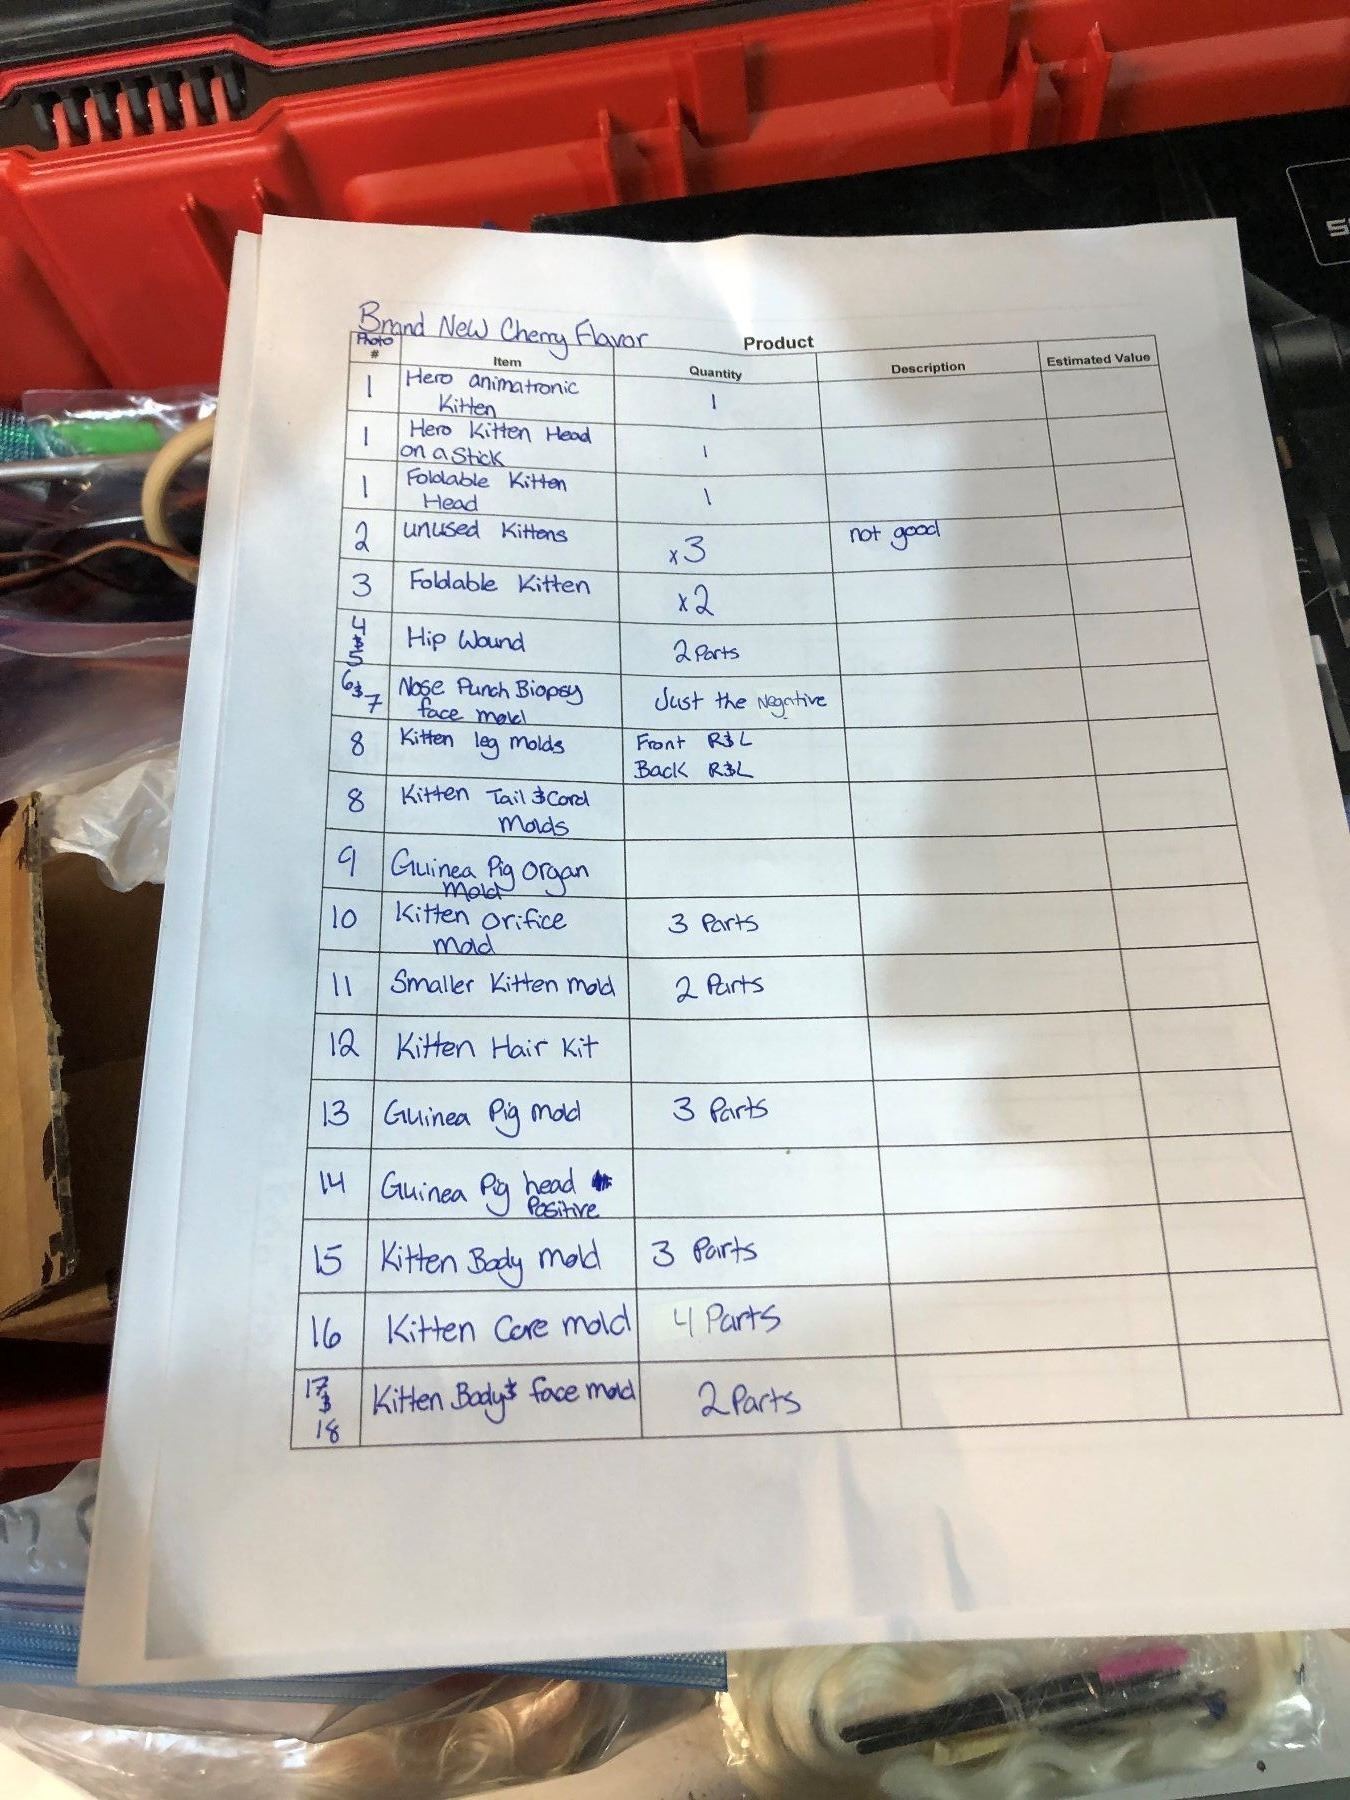 Brand New Cherry Flavor
Product
Photo # Item Quantity Description Estimated Value
1 Hero animatronic Kitten 1
1 Hero Kitten Head on a Stick 1
1 Foldable Kitten Head 1
2 unused Kittens x3 not good
3 Foldable Kitten x2
4 & 5 Hip Wound 2 Parts
6 & 7 Nose Punch Biopsy face mold Just the Negative
8 Kitten leg molds Front R&L
Back R&L
8 Kitten Tail & Cord Molds
9 Guinea Pig Organ Mold
10 Kitten Orifice mold 3 Parts
11 Smaller Kitten mold 2 Parts
12 Kitten Hair Kit
13 Guinea Pig mold 3 Parts
14 Guinea Pig head Positive
15 Kitten Body mold 3 Parts
16 Kitten Core mold 4 Parts
17 & 18 Kitten Body & face mold 2 Parts